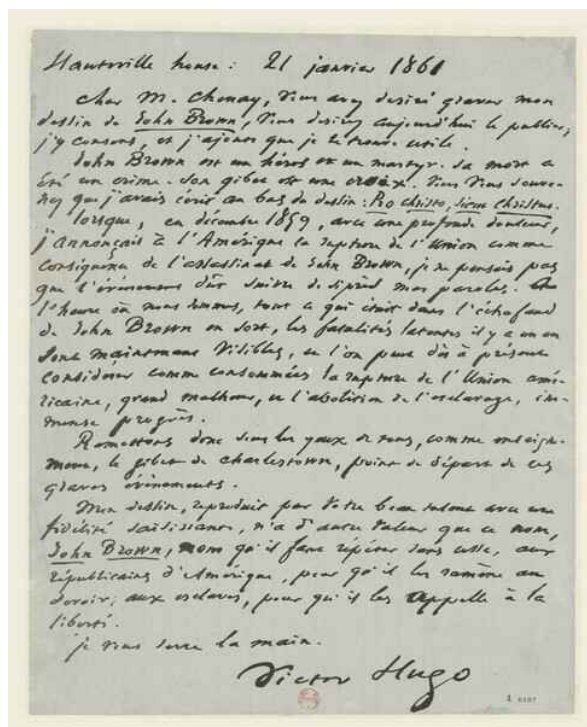 Hauteville house : 21 janvier 1861
Cher M. Chenay, vous avez desiré graver mon
dessin de John Brown, vous desirez aujourd'hui le publier;
j'y consens, et j'ajoute que je le trouve utile.
John Brown est un héros et un martyr. Sa mort a
été un crime. Son gibet est une croix. Vous vous souve-
nez que j'avais écrit au bas du dessin : Pro Christo, sicut Christus.
lorsque, en décembre 1859, avec une profonde douleur,
j'annonçais à l'Amérique la rupture de l'Union comme
conséquence de l'assassinat de John Brown, je ne pensais pas
que l'événement dût suivre de si près mes paroles.
l'heure où nous sommes, tout ce qui était dans l'échafaud
de John Brown en sort; les fatalités latentes il y a un an
sont maintenant visibles, et l'on peut dès à présent
considérer comme consommées la rupture de l'Union amé-
ricaine, grand malheur, et l'abolition de l'esclavage, im-
mense progrès.
Remettons donc sous les yeux de tous, comme enseigne-
ment, le gibet de Charlestown, point de départ de ces
graves événements.
Mon dessin, reproduit par votre beau talent avec une
fidélité saisissante, n'a d'autre valeur que ce nom,
John Brown, nom qu'il faut répéter sans cesse, aux
républicains d'Amérique, pour qu'il les ramène au
devoir; aux esclaves, pour qu'il les appelle à la
liberté.
je vous serre la main.
Victor Hugo